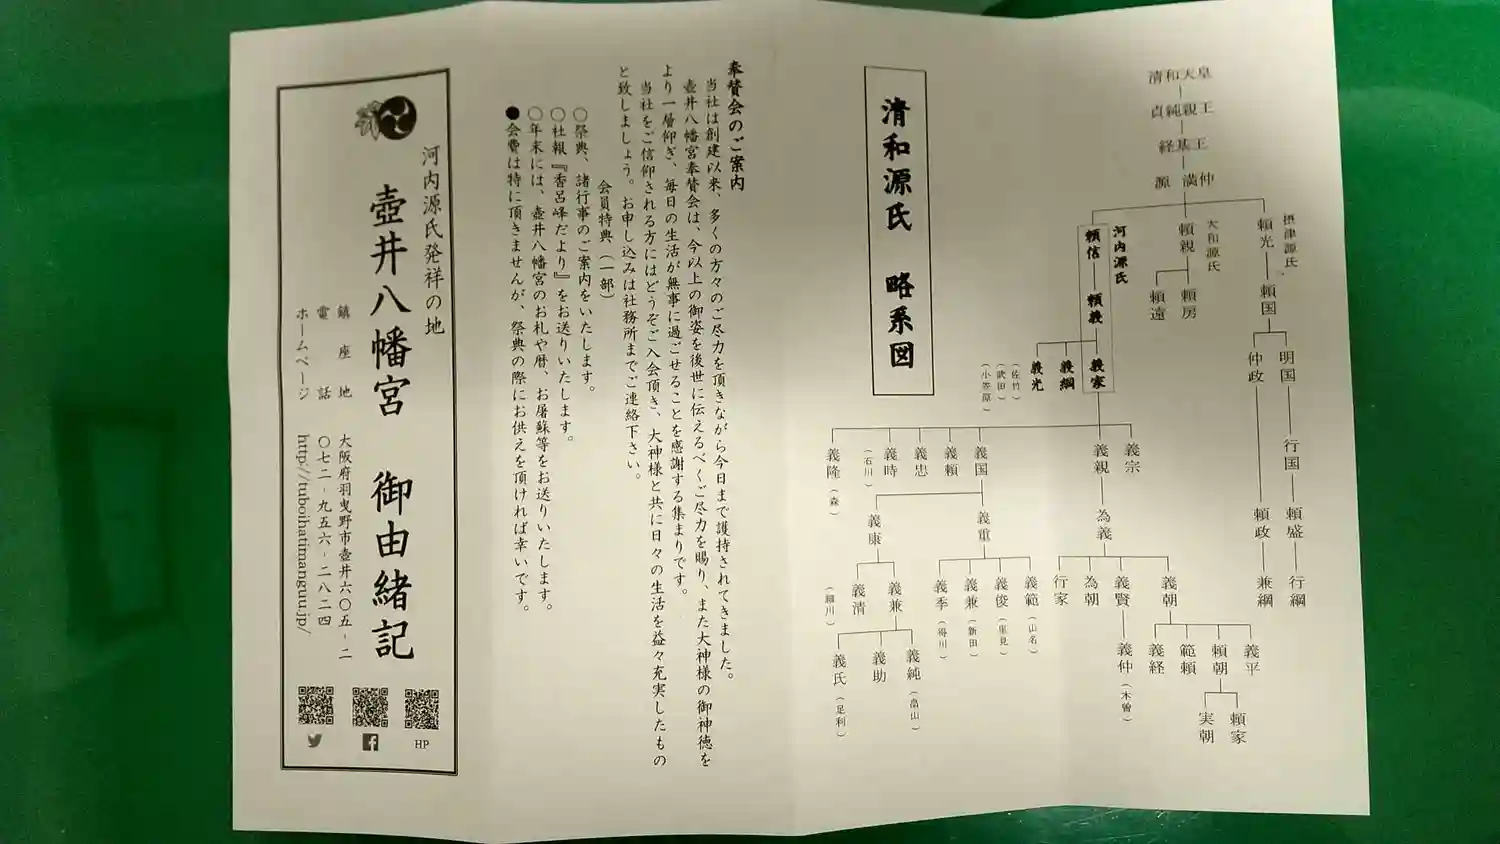 清和天皇
貞純親王
経基王
源 満仲
摂津源氏
頼光
頼国
明国
仲政
行国
頼盛
行綱
頼政
兼綱
大和源氏
頼親
頼房
頼遠
河内源氏
頼信
頼義
義家
義綱
義光
(佐竹)
(武田)
(小笠原)
義宗
義親
義国
義頼
義忠
義時
(石川)
義隆(森)
為義
義朝
義賢
為朝
行家
義平
頼朝
範頼
義経
頼家
実朝
義仲(木曽)
義重
義康
義範(山名)
義俊(里見)
義兼(新田)
義季(得川)
義兼
義清
(細川)
義純(畠山)
義助
義氏(足利)
清和源氏 略系図
奉賛会のご案内
当社は創建以来、多くの方々のご尽力を頂きながら今日まで護持されてきました。
壺井八幡宮奉賛会は、今以上の御姿を後世に伝えるべくご尽力を賜り、また大神様の御神徳を
より一層仰ぎ、毎日の生活が無事に過ごせることを感謝する集まりです。
当社をご信仰される方にはどうぞご入会頂き、大神様と共に日々の生活を益々充実したもの
と致しましょう。お申し込みは社務所までご連絡下さい。
会員特典(一部)
〇祭典、諸行事のご案内をいたします。
〇社報『香呂峰だより』をお送りいたします。
〇年末には、壺井八幡宮のお札や暦、お屠蘇等をお送りいたします。
●会費は特に頂きませんが、祭典の際にお供えを頂ければ幸いです。
河内源氏発祥の地
壺井八幡宮 御由緒記
鎮座地 大阪府羽曳野市壺井六〇五-二
電話 〇七二-九五六-二八二四
ホームページ http://tuboihatimanguu.jp/
HP